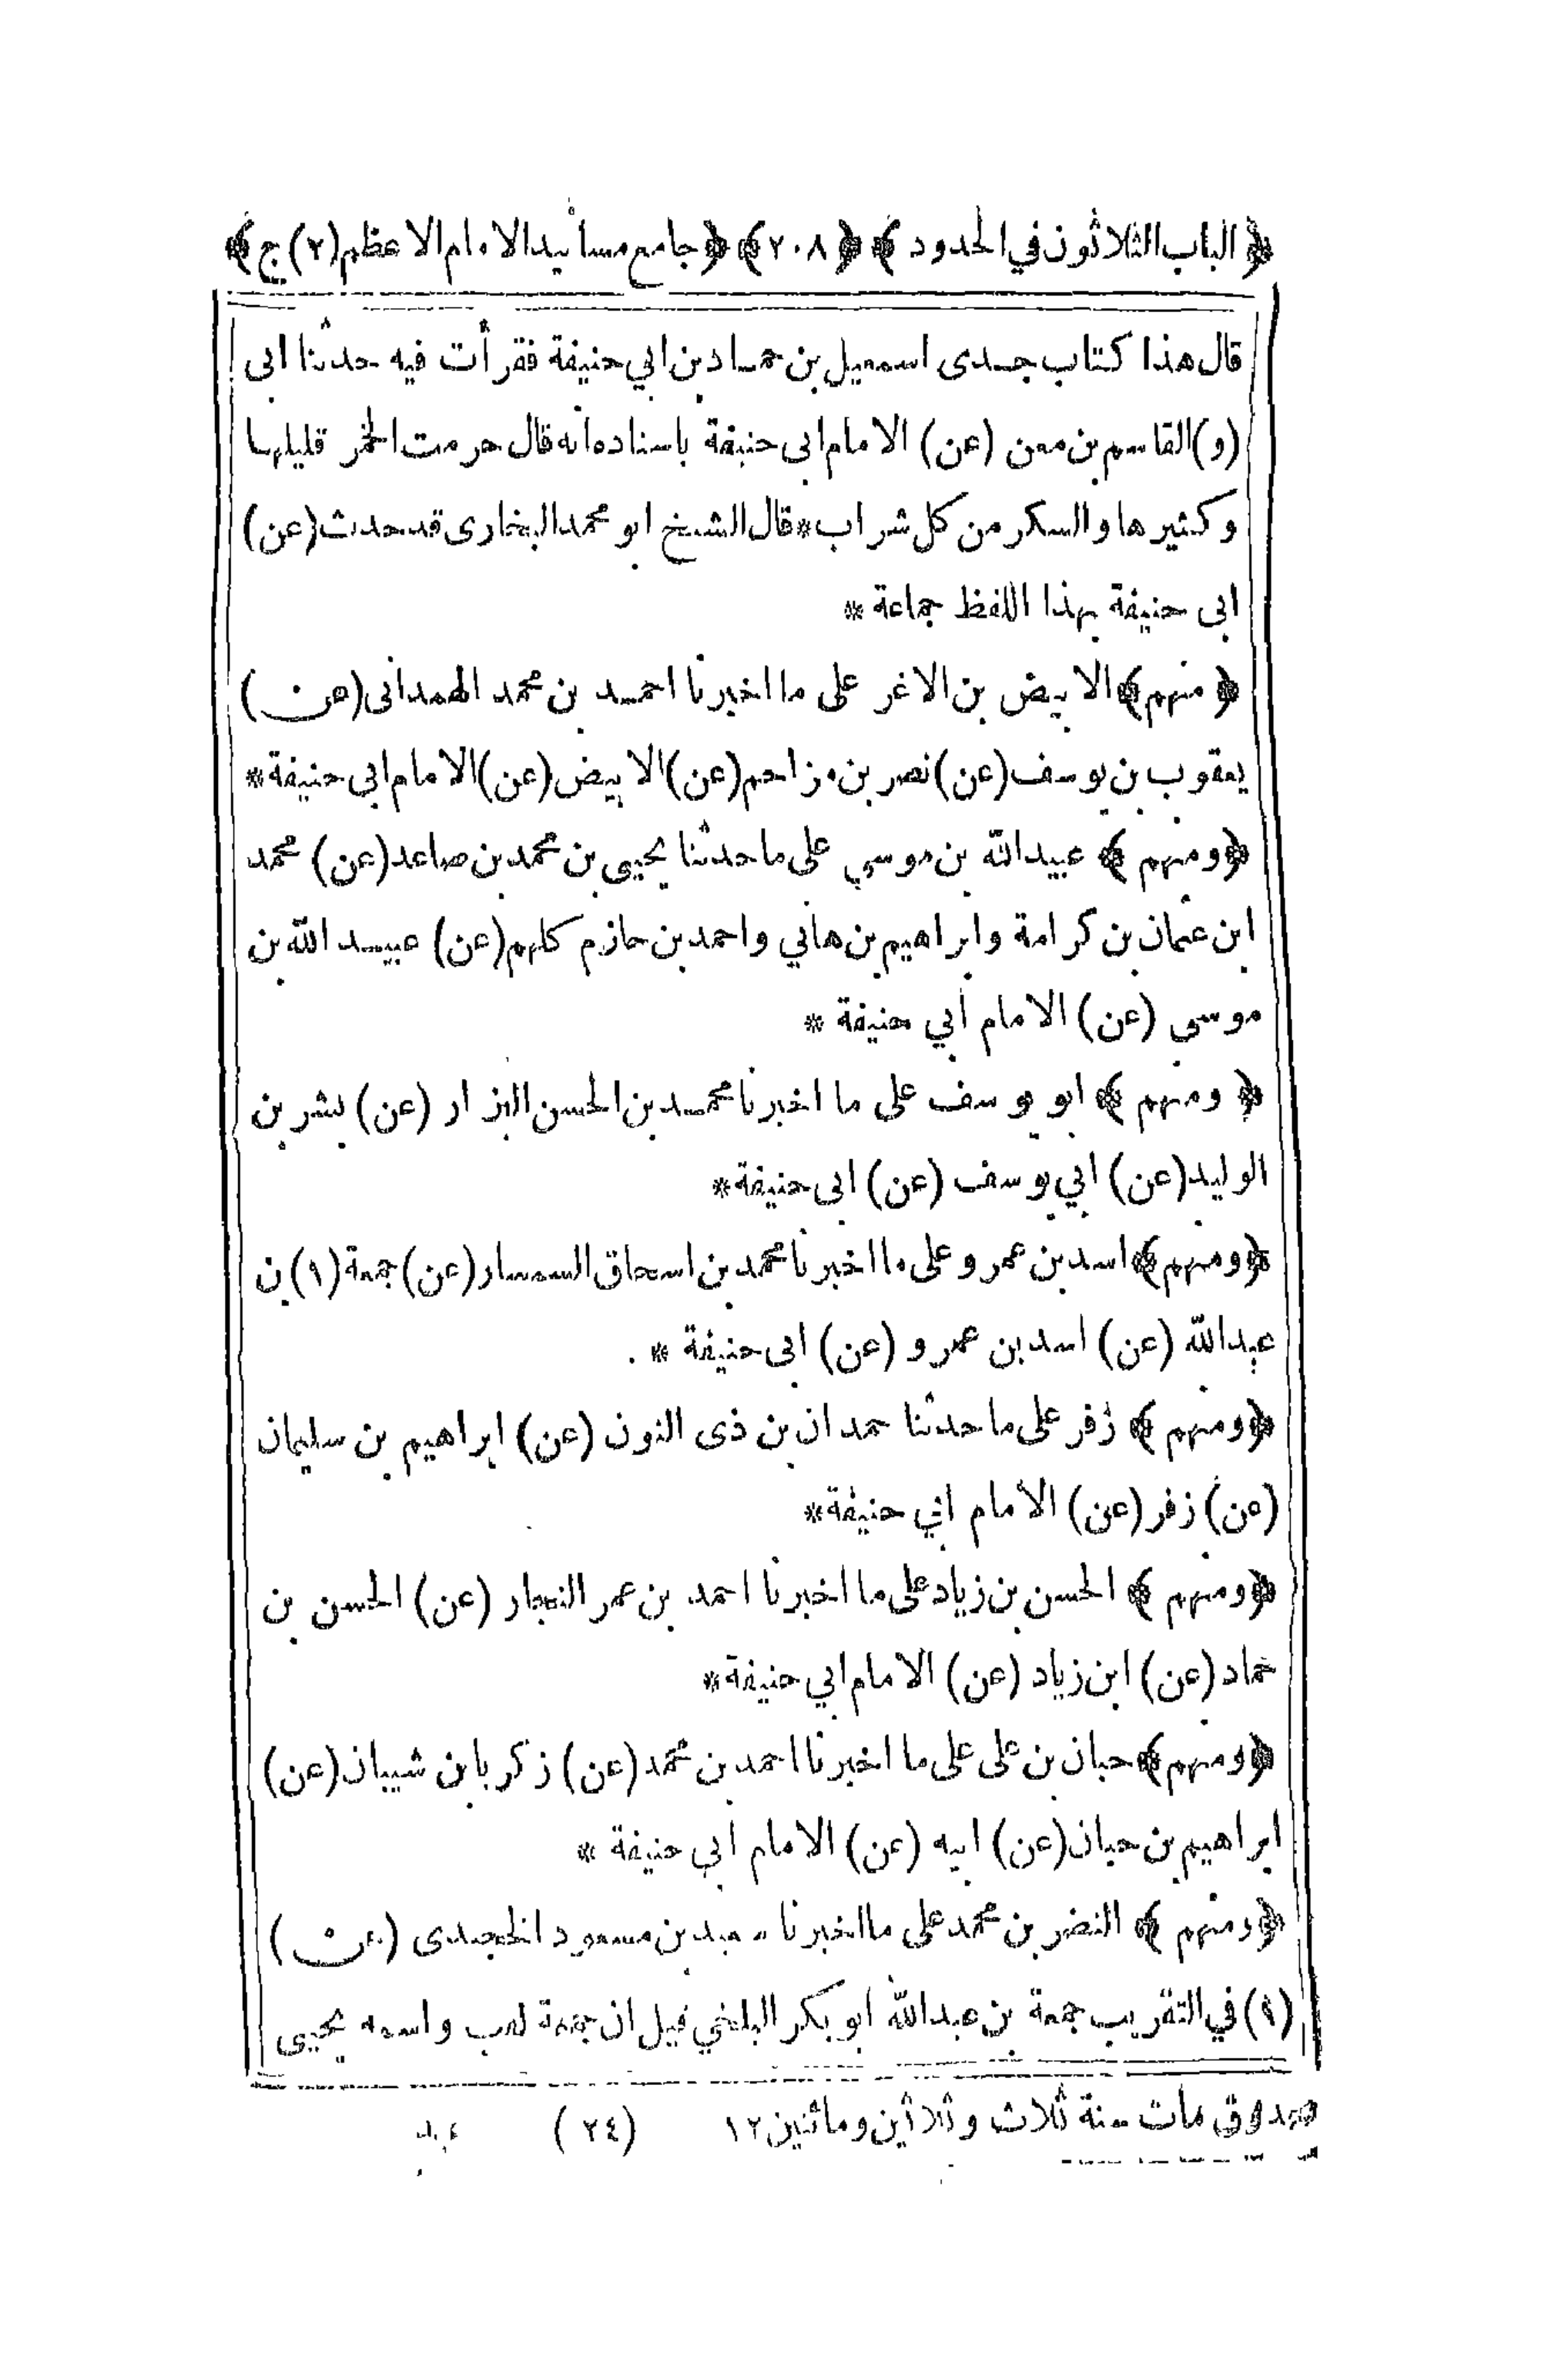 ﴿ الباب الثلاثون في الحدود ﴾ ﴿ ٢٠٨ ﴾ ﴿ جامع مسانيد الامام الاعظم (٢) ج ﴾
قال هذا كتاب جدى اسمعيل بن حماد بن ابي حنيفة فقرأت فيه حدثنا ابى
(و) القاسم بن معن (عن) الامام ابى حنيفة باسناده انه قال حرمت الخمر قليلها
وكثيرها والسكر من كل شراب * قال الشيخ ابو محمد البخارى قد حدث (عن)
ابى حنيفة بهذا اللفظ جماعة *
﴿ منهم ﴾ الابيض بن الاغر على ما اخبرنا احمد بن محمد الهمدانى (عن)
يعقوب بن يوسف (عن) نصر بن مزاحم (عن) الابيض (عن) الامام ابى حنيفة *
﴿ ومنهم ﴾ عبيدالله بن موسي على ما حدثنا يحيى بن محمد بن صاعد (عن) محمد
ابن عثمان بن كرامة وابراهيم بن هاني واحمد بن حازم كلهم (عن) عبيد الله بن
موسى (عن) الامام أبي حنيفة *
﴿ ومنهم ﴾ ابو يوسف على ما اخبرنا محمد بن الحسن البزار (عن) بشر بن
الوليد (عن) ابي يوسف (عن) ابى حنيفة *
﴿ ومنهم ﴾ اسد بن عمرو على ما اخبرنا محمد بن اسحاق السمسار (عن) جمعة (١) بن
عبدالله (عن) اسد بن عمرو (عن) ابى حنيفة *
﴿ ومنهم ﴾ زفر على ما حدثنا حمدان بن ذى النون (عن) ابراهيم بن سليمان
(عن) زفر (عن) الامام ابي حنيفة *
﴿ ومنهم ﴾ الحسن بن زياد على ما اخبرنا احمد بن عمر النجار (عن) الحسن بن
حماد (عن) ابن زياد (عن) الامام ابي حنيفة *
﴿ ومنهم ﴾ حبان بن على على ما اخبرنا احمد بن محمد (عن) زكريا بن شيبان (عن)
ابراهيم بن حبان (عن) ابيه (عن) الامام ابي حنيفة *
﴿ ومنهم ﴾ النضر بن محمد على ما اخبرنا بن مسعود الخجندى (عن)
(١) في التقريب جمعة بن عبدالله ابو بكر البلخي قيل ان جمعة لقب واسمه يحيى
صدوق مات سنة ثلاث وثلاثين ومائتين ١٢ (٢٤)